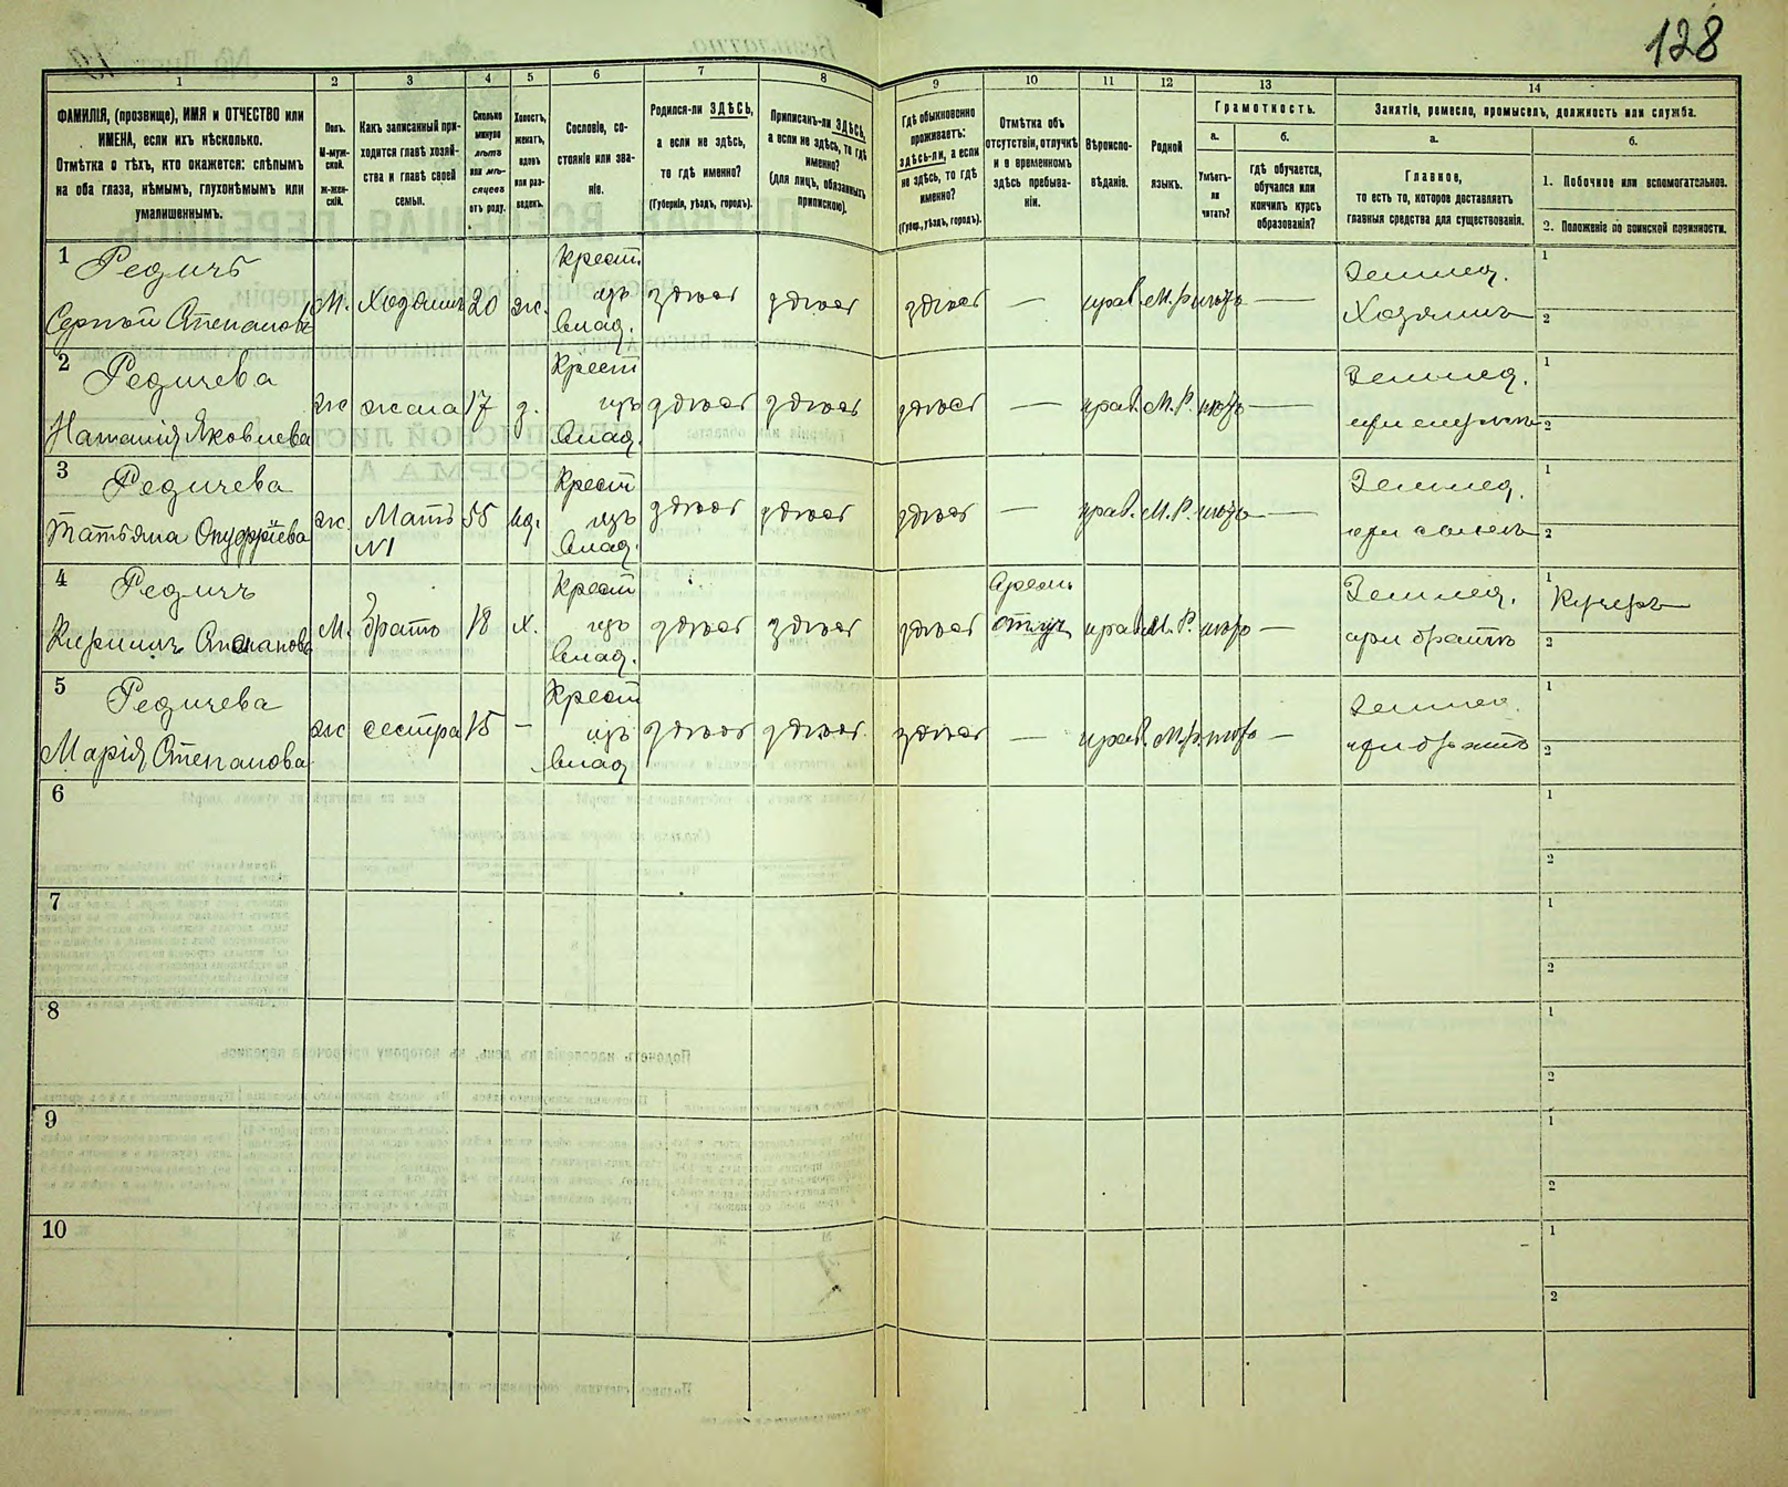 128
1 2 3 4 5 6 7 8 9 10 11 12 13 14
ФАМИЛІЯ, (прозвище), ИМЯ и ОТЧЕСТВО или
ИМЕНА, если ихъ нѣсколько.
Отмѣтка о тѣхъ, кто окажется: слѣпымъ
на оба глаза, нѣмымъ, глухонѣмымъ или
умалишеннымъ.
Полъ.
М-муж-
ской.
ж-жен-
скій.
Какъ записанный при-
ходится главѣ хозяй-
ства и главѣ своей
семьи.
Сколько
минуло
лѣтъ
или мѣ-
сяцевъ
отъ роду.
Холостъ,
женатъ,
вдовъ
или раз-
веденъ.
Сословіе, со-
стояніе или зва-
ніе.
Родился-ли ЗДѢСЬ,
а если не здѣсь,
то гдѣ именно?
(Губернія, уѣздъ, городъ).
Приписанъ-ли ЗДѢСЬ,
а если не здѣсь, то гдѣ
именно?
(для лицъ, обязанныхъ
припискою).
Гдѣ обыкновенно
проживаетъ:
здѣсь-ли, а если
не здѣсь, то гдѣ
именно?
(Губер., уѣздъ, городъ).
Отмѣтка объ
отсутствіи, отлучкѣ
и о временномъ
здѣсь пребыва-
ніи.
Вѣроиспо-
вѣданіе.
Родной
языкъ.
Грамотность.
а.
Умѣетъ-
ли
читать?
б.
гдѣ обучается,
обучался или
кончилъ курсъ
образованія?
Занятіе, ремесло, промыселъ, должность или служба.
а.
Главное,
то есть то, которое доставляетъ
главныя средства для существованія.
б.
1. Побочное или вспомогательное.
2. Положеніе по воинской повинности.
1 Редичъ
Сергѣй Степановъ М. Хозяинъ 20 ж. Крест. изъ влад. здѣсь здѣсь здѣсь — прав. М.р. — Землед. Хозяинъ 1 2
2 Редичева
Наталія Яковлева ж жена 17 з. Крест изъ влад. здѣсь здѣсь здѣсь — прав. М.Р. — Землед. при 1 2
3 Редичева
Татьяна Онуфріева ж. Мать N1 55 вд. Крест изъ влад. здѣсь здѣсь здѣсь — прав. М.Р. — Землед. при сынѣ 1 2
4 Редичъ
Кириллъ М. братъ 18 х. Крест изъ влад. здѣсь здѣсь здѣсь прав. М.Р. — Землед. при братѣ 1 Кучеръ 2
5 Редичева
Марія Степанова ж сестра 15 — Крест изъ влад здѣсь здѣсь здѣсь — прав. М.р. — Землед. при братѣ 1 2
6 1 2
7 1 2
8 1 2
9 1 2
10 1 2